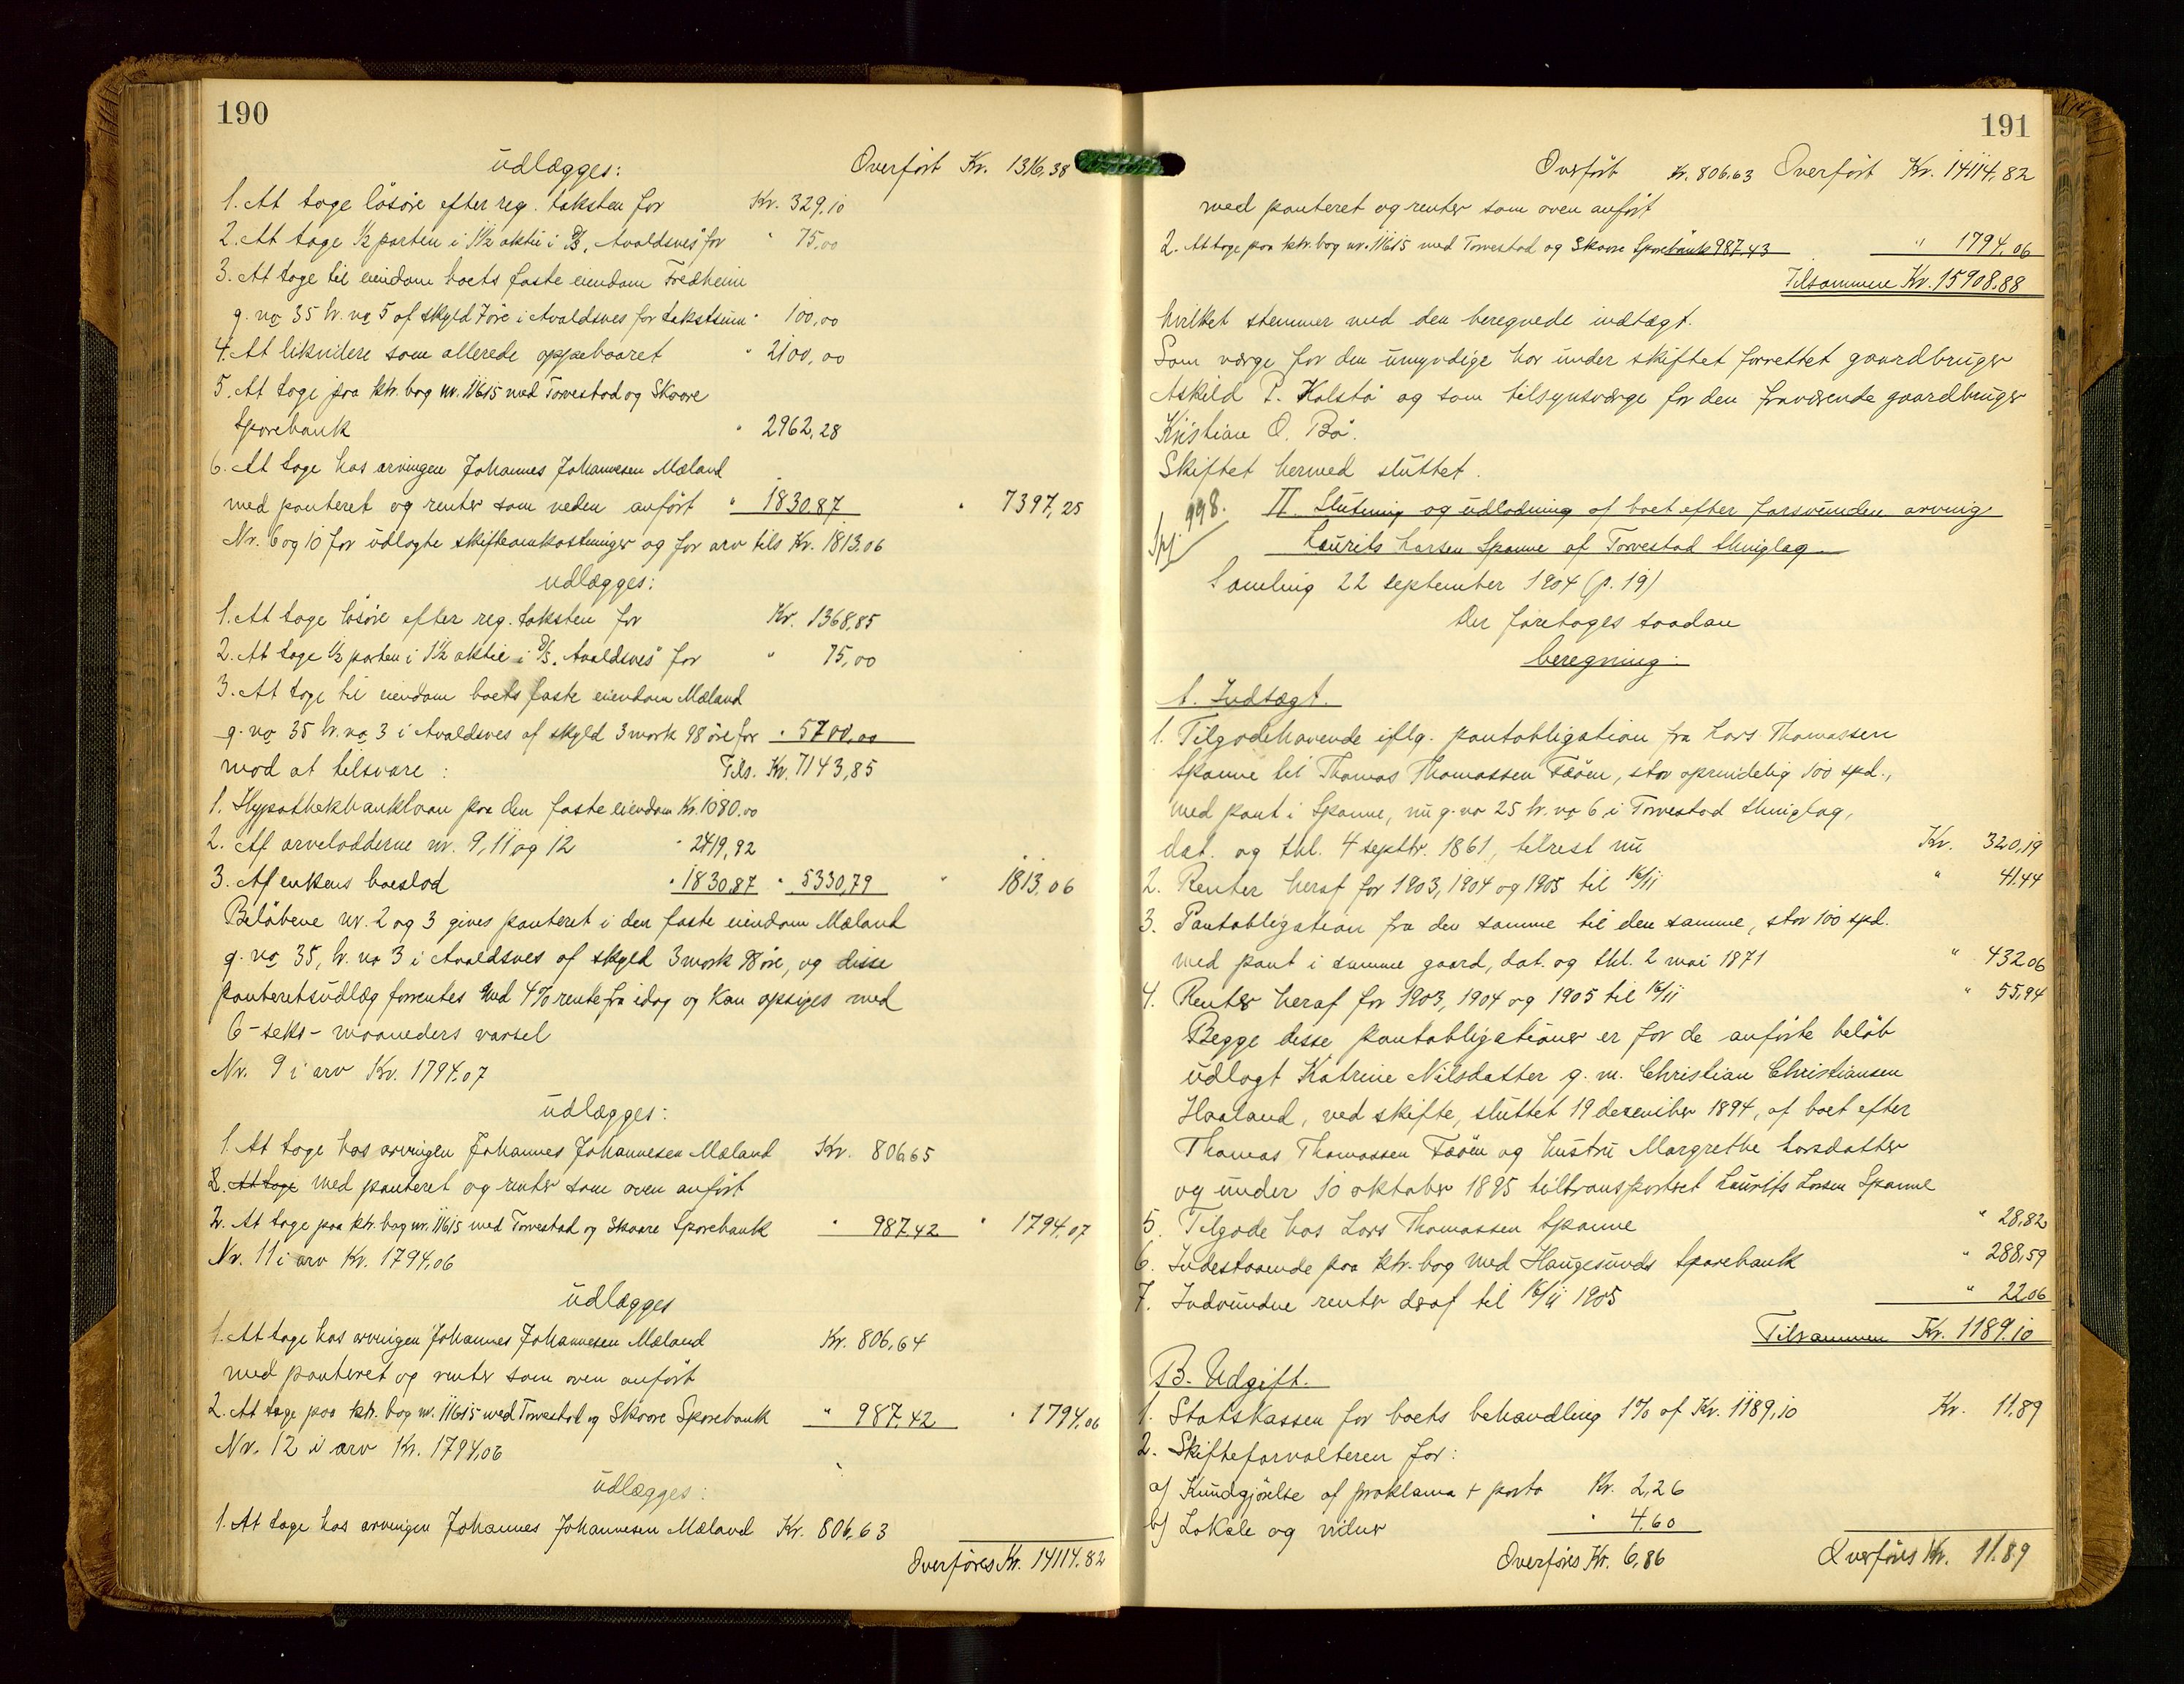 190
udlægges: Overført Kr. 1316,38
1. At tage løsøre efter reg. taksten for Kr. 329,10
2. At tage ½ parten i 1½ aktie i D/S. "Avaldsnes" for " 75,00
3. At tage til eiendom boets faste eiendom Fredheim
g. no 35 br. no 5 af skyld 7 øre i Avaldsnes for takstsum " 100,00
4. At likvidere som allerede oppebaaret " 2100,00
5. At tage paa ktr. bog nr. 11615 med Torvestad og Skaare
Sparebank " 2962,28
6. At tage hos arvingen Johannes Johannesen Mæland
med panteret og renter som neden anført " 1830,87 " 7397,25
Nr. 6 og 10 for udlagte skifteomkostninger og for arv tils Kr. 1813,06
udlægges:
1. At tage løsøre efter reg. taksten for Kr. 1368,85
2. At tage ½ parten i 1½ aktie i D/S. "Avaldsnes" for " 75,00
3. At tage til eiendom boets faste eiendom Mæland
g. no 35 br. no 3 i Avaldsnes af skyld 3 mark 98 øre for " 5700,00
mod at tilsvare: Tils. Kr. 7143,85
1. Hypothekbanklaan paa den faste eiendom Kr. 1080,00
2. Af arvelodderne nr. 9, 11 og 12 " 2419,92
3. Af enkens boeslod " 1830,87 " 5330,79 " 1813,06
Beløbene nr. 2 og 3 gives panteret i den faste eiendom Mæland
g. no 35, br. no 3 i Avaldsnes af skyld 3 mark 98 øre, og disse
panteretsudlæg forrentes med 4% rente fra idag og kan opsiges med
6 - seks - maaneders varsel
Nr. 9 i arv Kr. 1794,07
udlægges:
1. At tage hos arvingen Johannes Johannesen Mæland Kr. 806,65
2. At tage med panteret og renter som oven anført
2. At tage paa ktr. bog nr. 11615 med Torvestad og Skaare Sparebank " 987,42 " 1794,07
Nr. 11 i arv Kr. 1794,06
udlægges
1. At tage hos arvingen Johannes Johannesen Mæland Kr. 806,64
med panteret og renter som oven anført
2. At tage paa ktr. bog nr. 11615 med Torvestad og Skaare Sparebank " 987,42 " 1794,06
Nr. 12 i arv Kr. 1794,06
udlægges:
1. At tage hos arvingen Johannes Johannesen Mæland Kr. 806,63
Overføres Kr. 14114,82
191
Overført Kr. 806,63 Overført Kr. 14114,82
med panteret og renter som oven anført
2. At tage paa ktr. bog nr. 11615 med Torvestad og Skaare Sparebank 987,43 " 1794,06
Tilsammen Kr. 15908,88
hvilket stemmer med den beregnede indtægt.
Som værge for den umyndige har under skiftet forrettet gaardbruger
Askild P. Kalstø og som tilsynsværge for den fraværende gaardbruger
Kristian O. Bø.
Skiftet hermed sluttet.
998. II. Slutning og udlodning af boet efter forsvunden arving
Laurits Larsen Spanne af Torvestad thinglag
Samling 22 september 1904 (p. 19)
Der foretages saadan
beregning:
A. Indtægt.
1. Tilgodehavende iflg. pantobligation fra Lars Thomassen
Spanne til Thomas Thomassen Fæøen, stor oprindelig 100 spd.,
med pant i Spanne, nu g. no 25 br. no 6 i Torvestad thinglag,
dat. og thl. 4 septbr. 1861, tilrest nu Kr. 320,19
2. Renter heraf for 1903, 1904 og 1905 til 16/11 " 41,44
3. Pantobligation fra den samme til den samme, stor 100 spd.
med pant i samme gaard, dat. og thl. 2 mai 1871 " 432,06
4. Renter heraf for 1903, 1904 og 1905 til 16/11 " 55,94
Begge disse pantobligationer er for de anførte beløb
udlagt Katrine Nilsdatter g. m. Christian Christiansen
Haaland, ved skifte, sluttet 19 desember 1894, af boet efter
Thomas Thomassen Fæøen og hustru Margrethe Larsdatter
og under 10 oktober 1895 tiltransportert Laurits Larsen Spanne
5. Tilgode hos Lars Thomassen Spanne " 28,82
6. Indestaaende paa ktr. bog med Haugesunds Sparebank " 288,59
7. Indvundne renter deraf til 16/11 1905 " 22,06
Tilsammen Kr. 1189,10
B. Udgift.
1. Statskassen for boets behandling 1% af Kr. 1189,10 Kr. 11,89
2. Skifteforvalteren for:
a) Kundgjørelse af proklama + porto Kr. 2,26
b) Lokale og vidner " 4,60
Overføres Kr. 6,86 Overføres Kr. 11,89